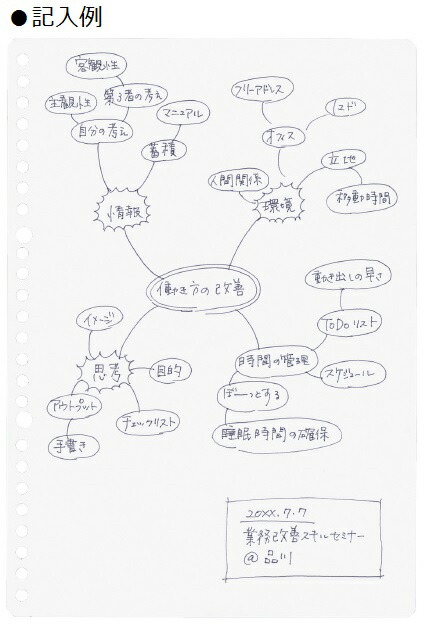 ●記入例
客観性
第3者の考え
主観性
自分の考え
マニュアル
蓄積
情報
フリーアドレス
エコド
オフィス
立地
人間関係
移動時間
環境
働き方の改善
動き出しの早さ
ToDoリスト
時間の管理
スケジュール
ぼーっとする
睡眠時間の確保
イメージ
思考
目的
アウトプット
チェックリスト
手書き
20XX.7.7
業務改善スキルセミナー
@品川